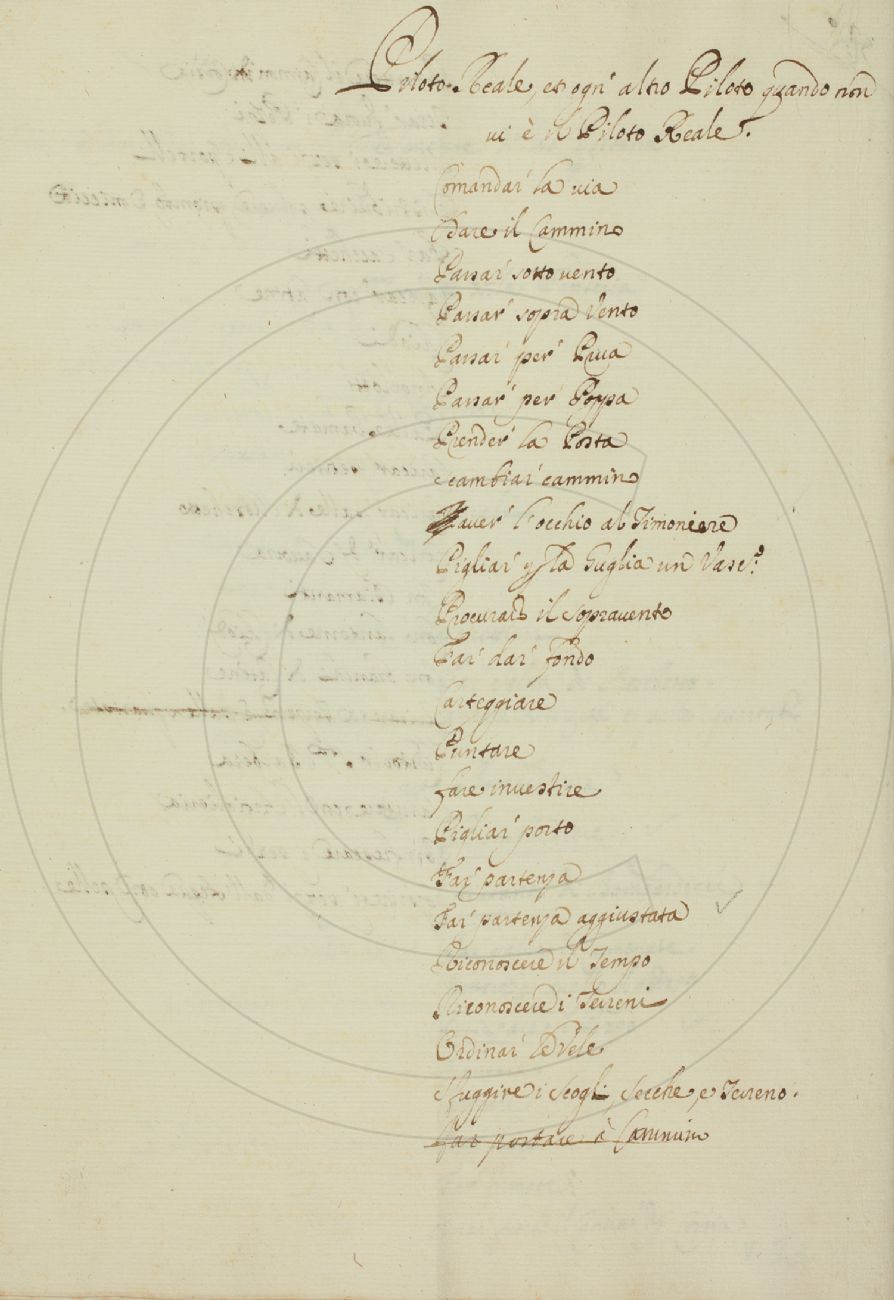 Piloto Reale, et ogn' altro Piloto quando non
vi è il Piloto Reale.
Comandar la via
Dare il Cammino
Passar sotto vento
Passar sopra Vento
Passar per Prua
Passar per Poppa
Prender la Posta
Scambiar cammino
haver l'occhio al Timoniere
Pigliar la Guglia un Vasc.º
Procurare il sopravento
Far dar fondo
Carteggiare
Puntare
fare investire
Pigliar porto
Far partenza
Far partenza aggiustata
Riconoscere il Tempo
Riconoscere i Terreni
Ordinar le Vele
Sfuggire i Scogli, Secche, e Terreno.
far portare à Cammin